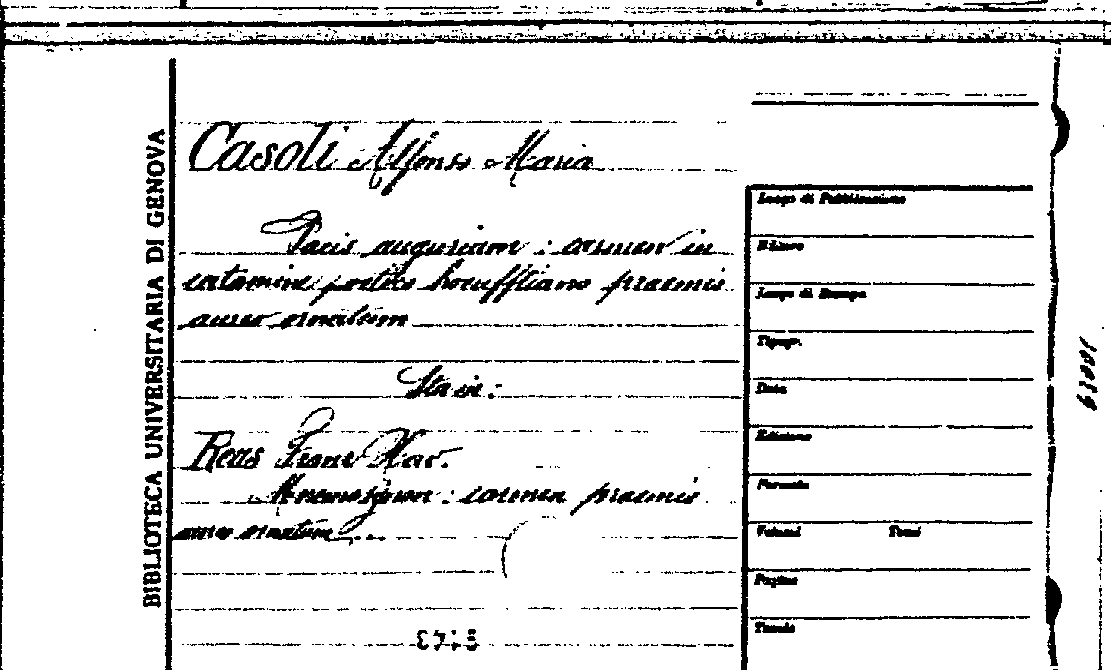 BIBLIOTECA UNIVERSITARIA DI GENOVA
Casoli Alfonso Maria
Pacis augurium : carmen in
certamine poetico hoeufftiano praemio
aureo ornatum
Sta in:
Reus Franc Xav.
Mnemosynon : carmen praemio
aureo ornatum...
Luogo di Pubblicazione
Editore
Luogo di Stampa
Tipogr.
Data
Edizione
Formato
Volumi Tomi
Pagine
Tavole